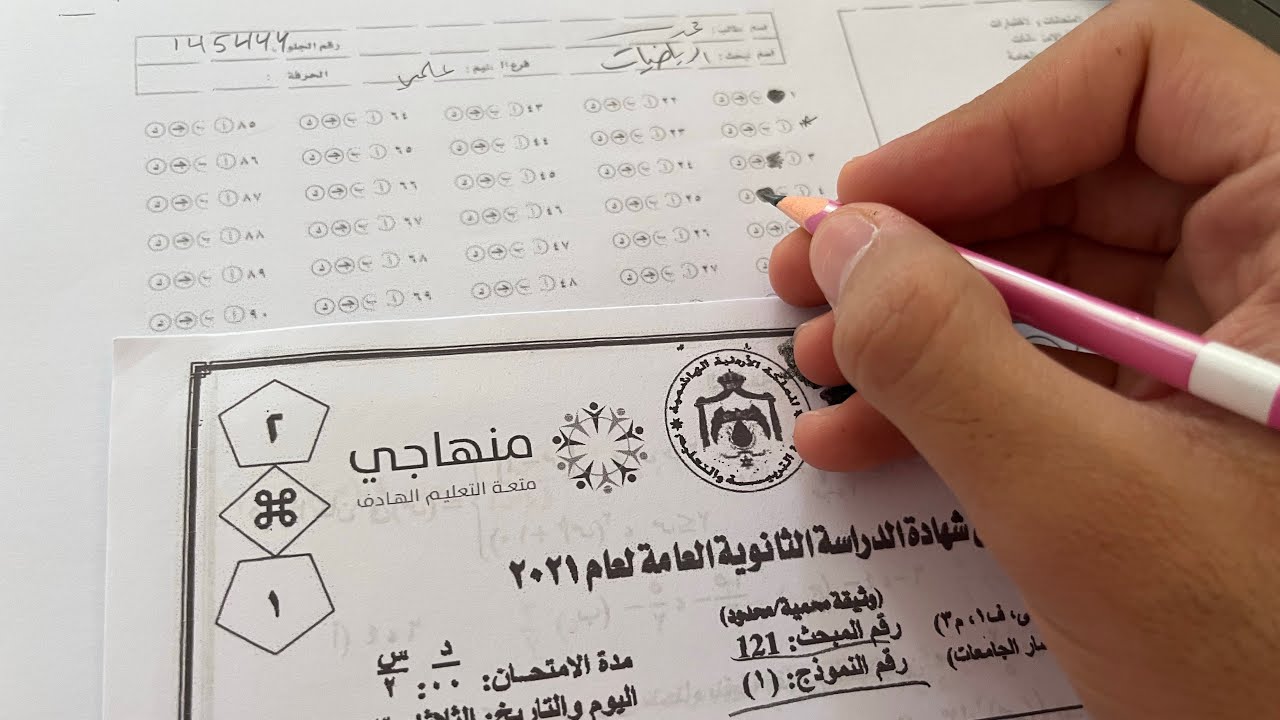 اسم الطالب: محمد
رقم الجلوس
اسم المبحث: الرياضيات
فرع التعليم: علمي
الغرفة:
٨٥ أ ب ج د ٦٤ أ ب ج د ٤٣ أ ب ج د ٢٢ أ ب ج د ١
٨٦ أ ب ج د ٦٥ أ ب ج د ٤٤ أ ب ج د ٢٣ أ ب ج د
٨٧ أ ب ج د ٦٦ أ ب ج د ٤٥ أ ب ج د ٢٤ أ ب ج د ٣
٨٨ أ ب ج د ٦٧ أ ب ج د ٤٦ أ ب ج د ٢٥ أ ب ج د ٤
٨٩ أ ب ج د ٦٨ أ ب ج د ٤٧ أ ب ج د ٢٦ أ ب ج د
٩٠ أ ب ج د ٦٩ أ ب ج د ٤٨ أ ب ج د ٢٧ أ ب ج د
٢
منهاجي
متعة التعليم الهادف
المملكة الأردنية الهاشمية
التربية والتعليم
شهادة الدراسة الثانوية العامة لعام ٢٠٢١
١
(وثيقة محمية/محدود)
رقم المبحث: 121
مدة الامتحان: ٠٠ : ٢
د س
رقم النموذج: (١)
اليوم والتاريخ: الثلاثاء